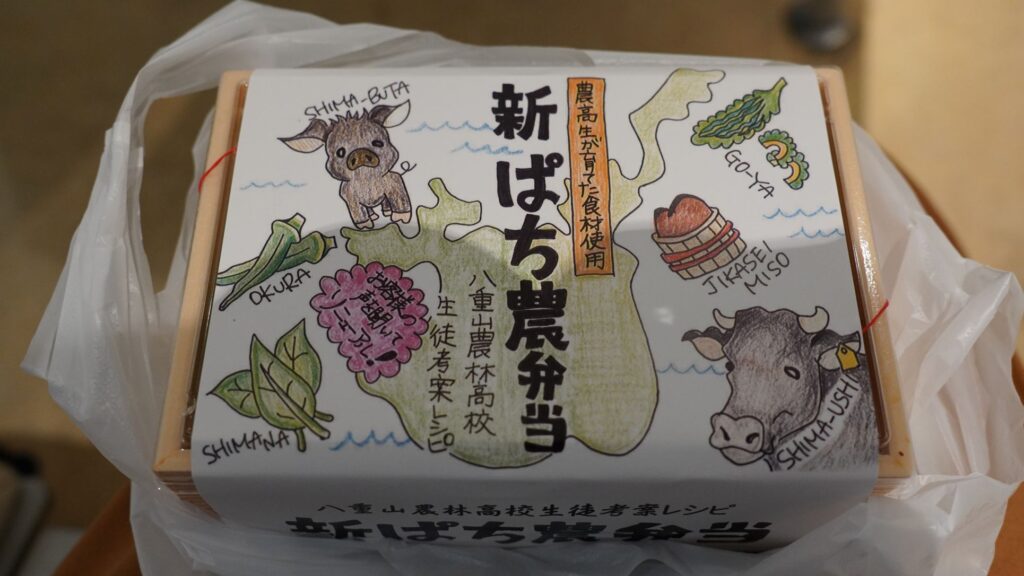 農高生が育てた食材使用
新ぱち農弁当
八重山農林高校
生徒考案レシピ
SHIMA-BUTA
GO-YA
OKURA
JIKASEI
MISO
SHIMANA
SHIMA-USHI
八重山農林高校生徒考案レシピ
新ぱち農弁当